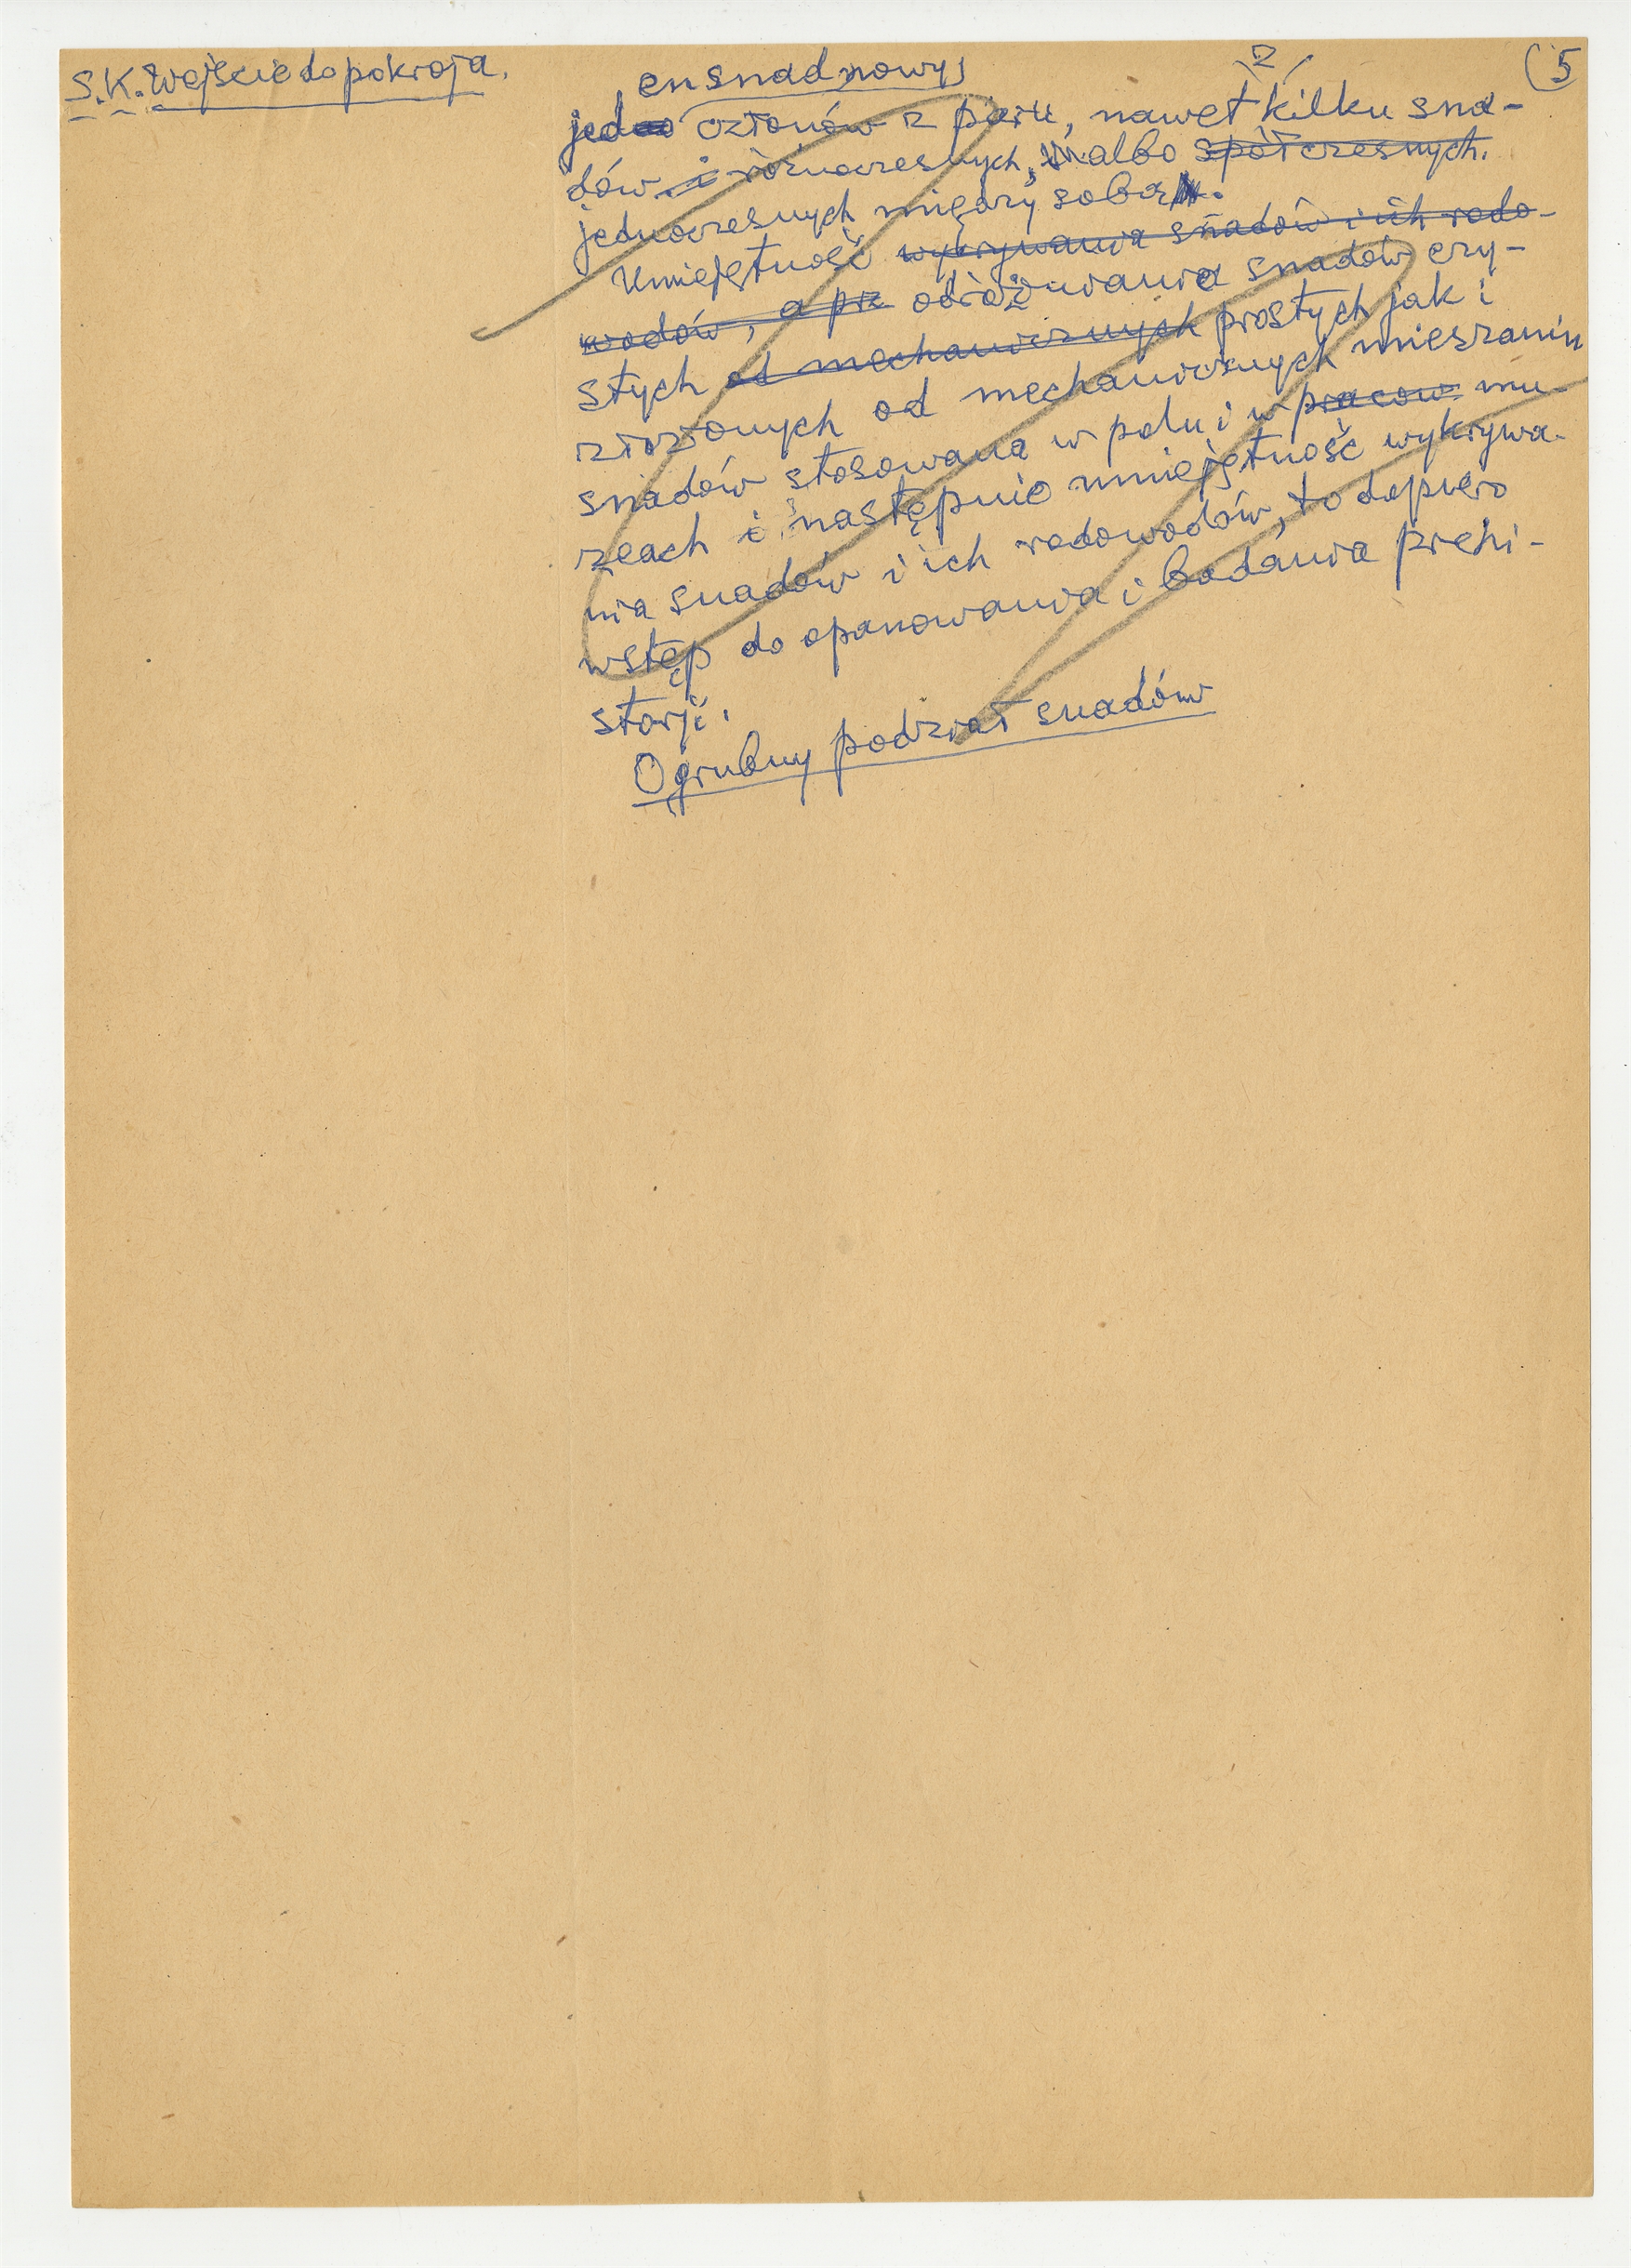 S.K. Wejście do pokroja.
2
(5
en snad nowy
jedno członów z paru, nawet kilku sna-
dów i różnoczesnych, albo spółczesnych.
jednoczesnych między sobą.
Umiejętność wykrywania snadów i ich rodo-
wodów, a prz odróżniania snadów czy-
stych od mechanicznych prostych jak i
złożonych od mechanicznych mieszanin
snadów stosowana w polu i w pracow mu-
zeach i następnie umiejętność wykrywa-
nia snadów i ich rodowodów, to dopiero
wstęp do opanowania i badania prehi-
storji.
Ogrubny podział snadów